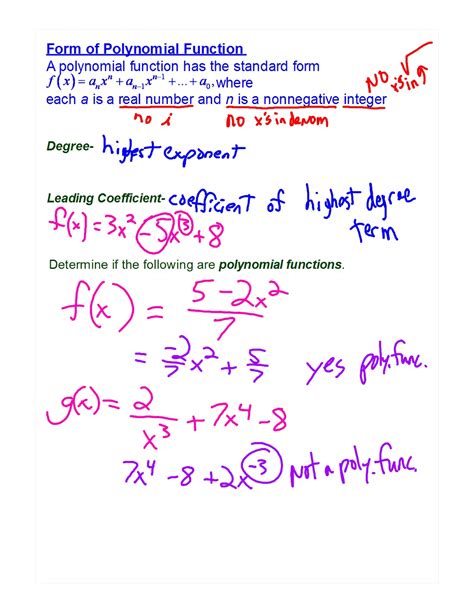 Form of Polynomial Function
A polynomial function has the standard form
f(x) = aₙxⁿ + aₙ₋₁xⁿ⁻¹ + ... + a₀, where
NO x's in √
each a is a real number and n is a nonnegative integer
no i no x's in denom
Degree- highest exponent
Leading Coefficient- coefficient of highest degree term
f(x) = 3x² - 5x³ + 8
Determine if the following are polynomial functions.
f(x) = (5 - 2x²)/7
= -2/7 x² + 5/7 yes poly. func.
g(x) = 2/x³ + 7x⁴ - 8
7x⁴ - 8 + 2x⁻³ not a poly. func.